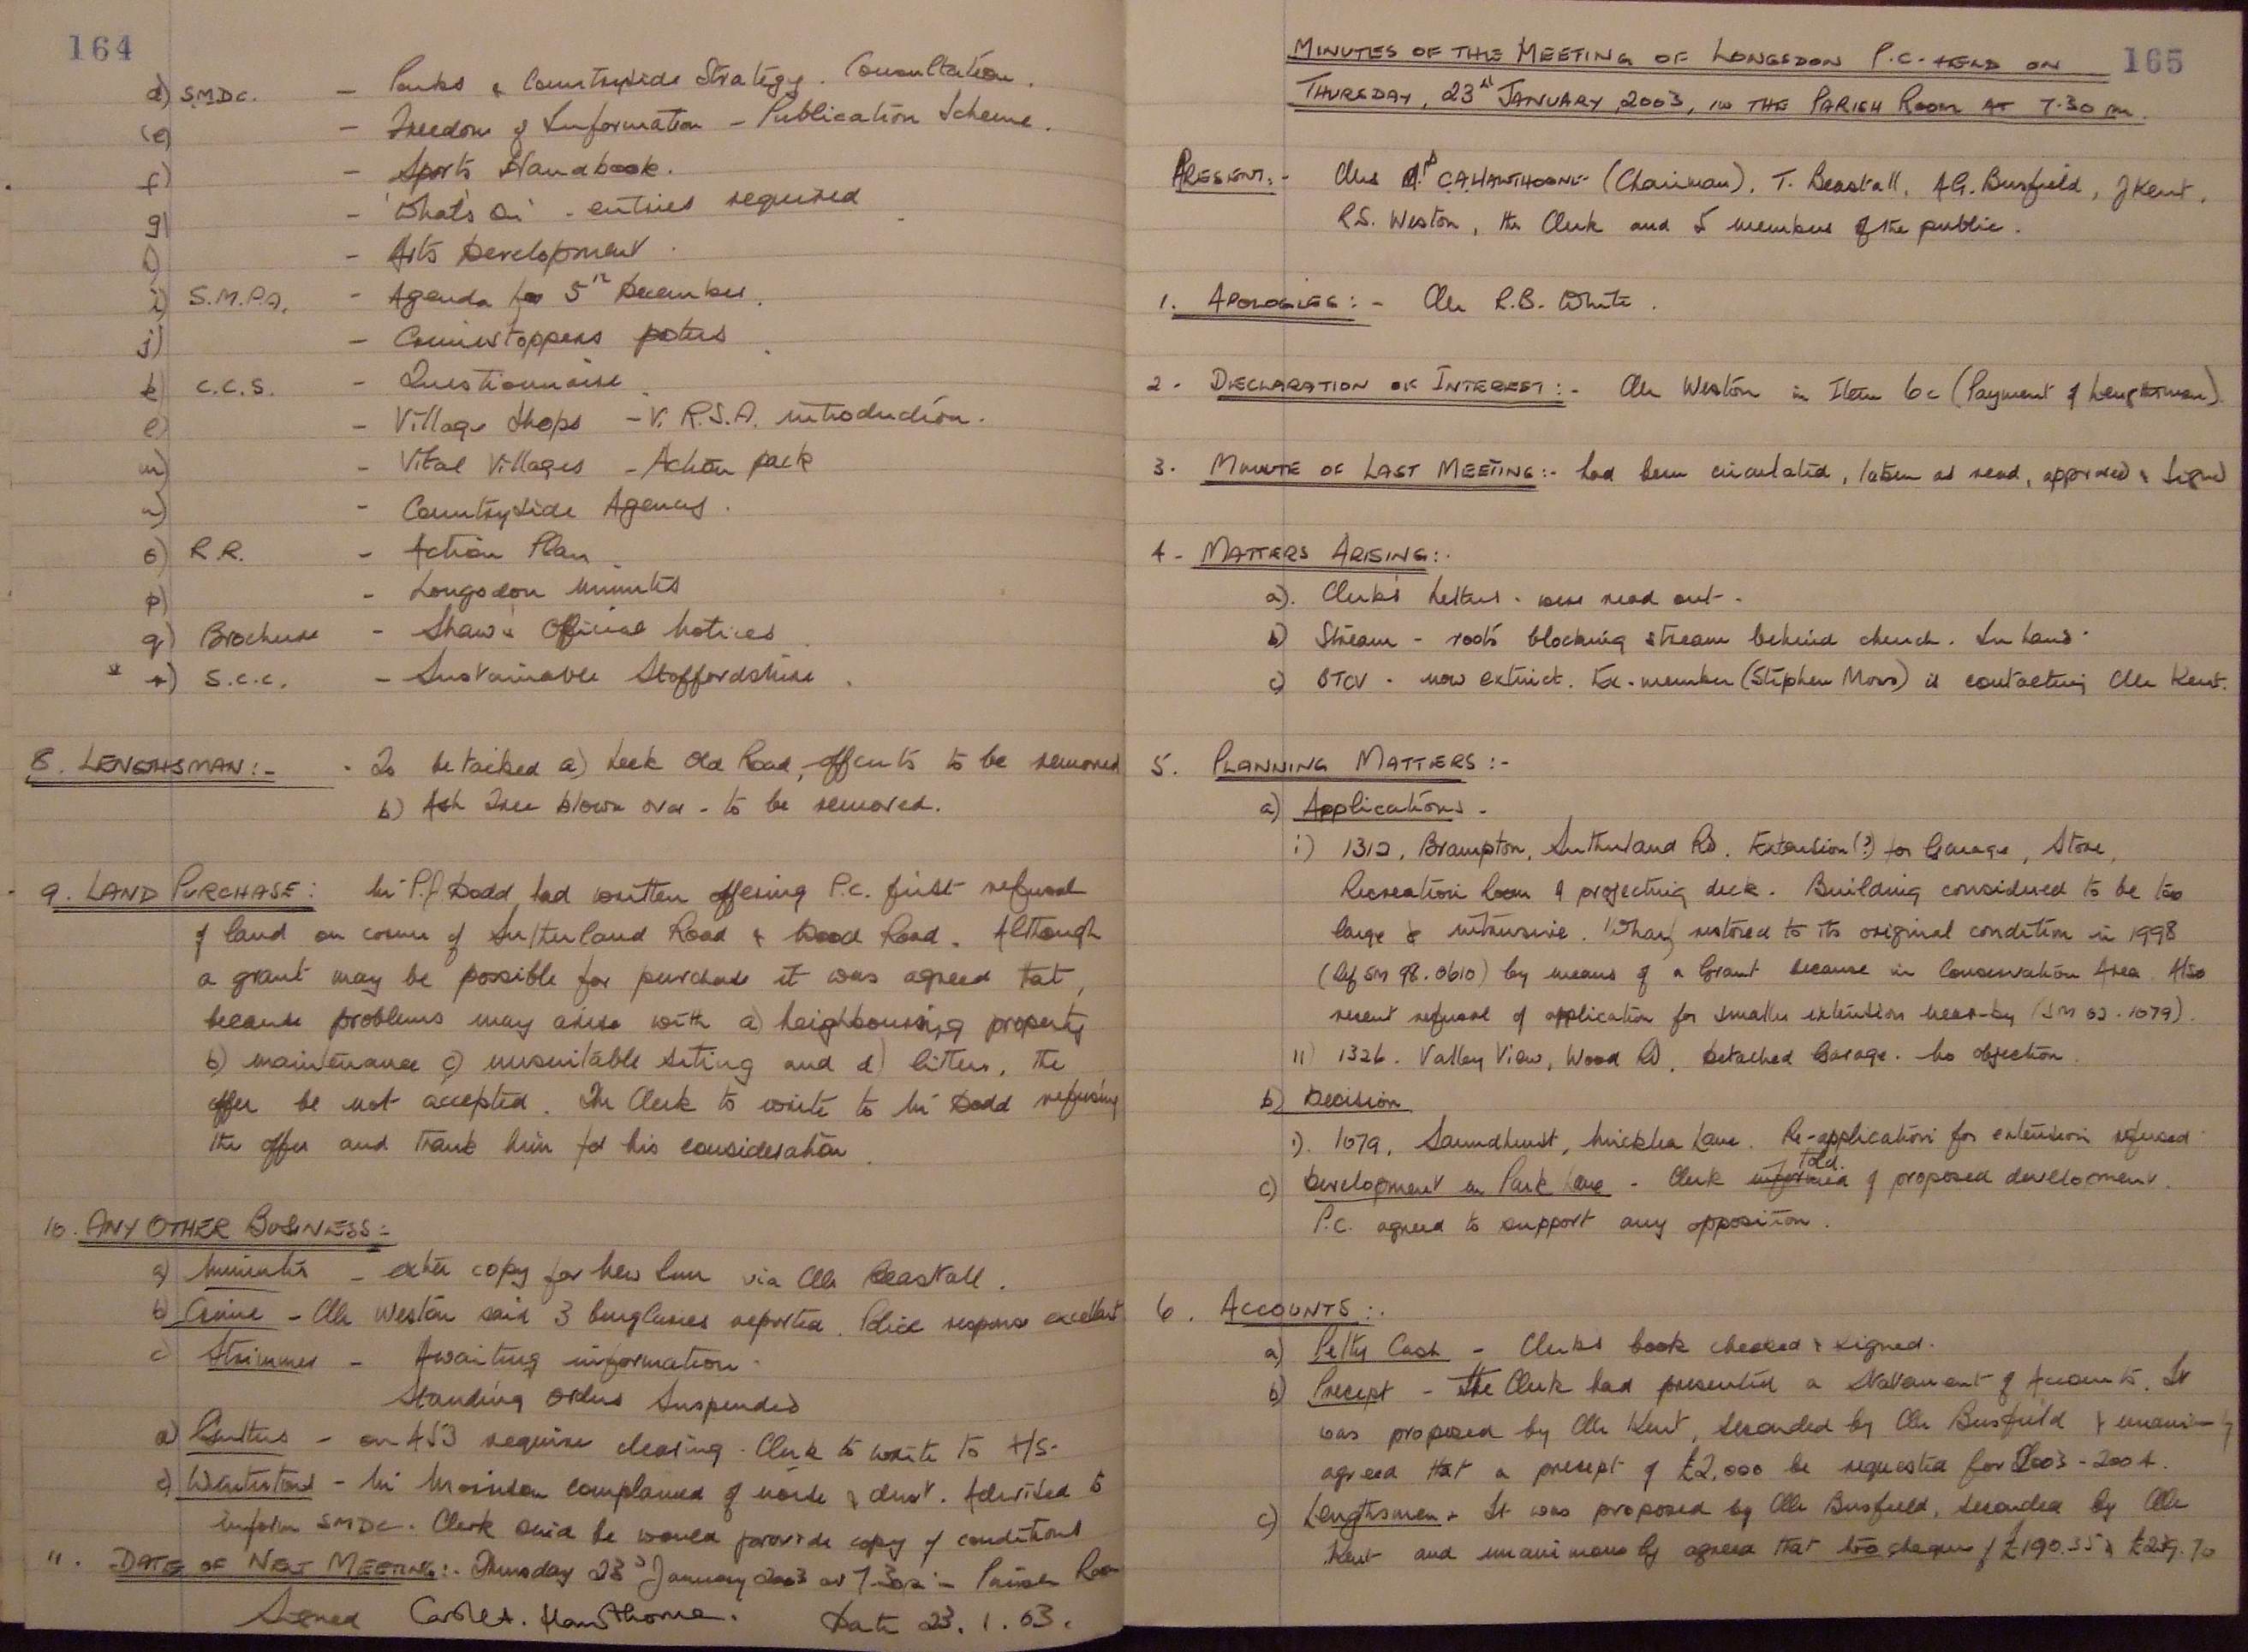 164
d) S.M.D.C. - Parks & Countryside Strategy. Consultation.
(e) - Freedom of Information - Publication Scheme.
f) - Sports Handbook.
g) - 'What's On' - entries required
- Arts Development.
i) S.M.P.A. - Agenda for 5th December.
j) - Crimestoppers poters
k) C.C.S. - Questionnaire
l) - Village Shops - V.R.S.A. introduction.
m) - Vital Villages - Action pack
n) - Countryside Agency.
o) R.R. - Action Plan
p) - Longsdon Minutes
q) Brochure - Shaw's Official Notices
* r) S.C.C. - Sustainable Staffordshire.
8. LENGHSMAN:- - To be tasked a) Leek Old Road, offcuts to be removed
b) Ash Tree blown over - to be removed.
9. LAND PURCHASE: Mr P.J. Dodd had written offering P.C. first refusal
of land on corner of Sutherland Road & Wood Road. Although
a grant may be possible for purchase it was agreed tat,
because problems may arise with a) neighbouring property
b) maintenance c) unsuitable siting and d) litter, the
offer be not accepted. The Clerk to write to Mr Dodd refusing
the offer and thank him for his consideration.
10. ANY OTHER BUSINESS:-
a) Minutes - extra copy for New Inn via Cllr Beastall.
b) Crime - Cllr Weston said 3 burglaries reported. Police response excellent
c) Strimmer - Awaiting information.
Standing Orders Suspended
d) Gutters - on A53 require clearing. Clerk to write to H/S.
e) - Mr complained of noise & dust. Advised to
inform SMDC. Clerk said he would provide copy of conditions
11. DATE OF NEXT MEETING:- Thursday 23rd January 2003 at 7.30pm in Parish Room
Signed Carole A. Hawthorne. Date 23.1.03.
MINUTES OF THE MEETING OF LONGSDON P.C. HELD ON 165
THURSDAY, 23rd JANUARY, 2003, IN THE PARISH ROOM AT 7.30 pm.
PRESENT:- Cllrs C.A. HAWTHORNE (Chairman), T. Beastall, A.G. Busfield, J Kent,
R.S. Weston, the Clerk and 5 members of the public.
1. APOLOGIES:- Cllr R.B. White.
2. DECLARATION OF INTEREST:- Cllr Weston in Item 6c (Payment of Lengthsman)
3. MINUTE OF LAST MEETING:- had been circulated, taken as read, approved & signed
4. MATTERS ARISING:-
a). Clerk's Letters - were read out.
b) Stream - roots blocking stream behind church. In hand.
c) BTCV - now extinct. Ex-member (Stephen Moss) is contacting Cllr Kent.
5. PLANNING MATTERS:-
a) Applications -
i) 1312, Brampton, Sutherland Rd. Extension(?) for Garage, Store,
Recreation Room & projecting deck. Building considered to be too
large & intrusive. Wharf restored to its original condition in 1998
(Ref SM 98.0610) by means of a Grant because in Conservation Area. Also
recent refusal of application for smaller extension near-by (SM 02.1079).
ii) 1326. Valley View, Wood Rd. Detached Garage. No objection.
b) Decision
i). 1079, Lane. Re-application for extension refused.
c) Development on Park Lane - Clerk informed told of proposed development.
P.C. agreed to support any opposition.
6. ACCOUNTS:-
a) Petty Cash - Clerk's book checked & signed.
b) Precept - The Clerk had presented a Statement of Accounts. It
was proposed by Cllr Kent, seconded by Cllr Busfield & unanimously
agreed that a precept of £2,000 be requested for 2003-2004.
c) Lengthsman - It was proposed by Cllr Busfield, seconded by Cllr
Kent and unanimously agreed that two cheques of £190.35 &